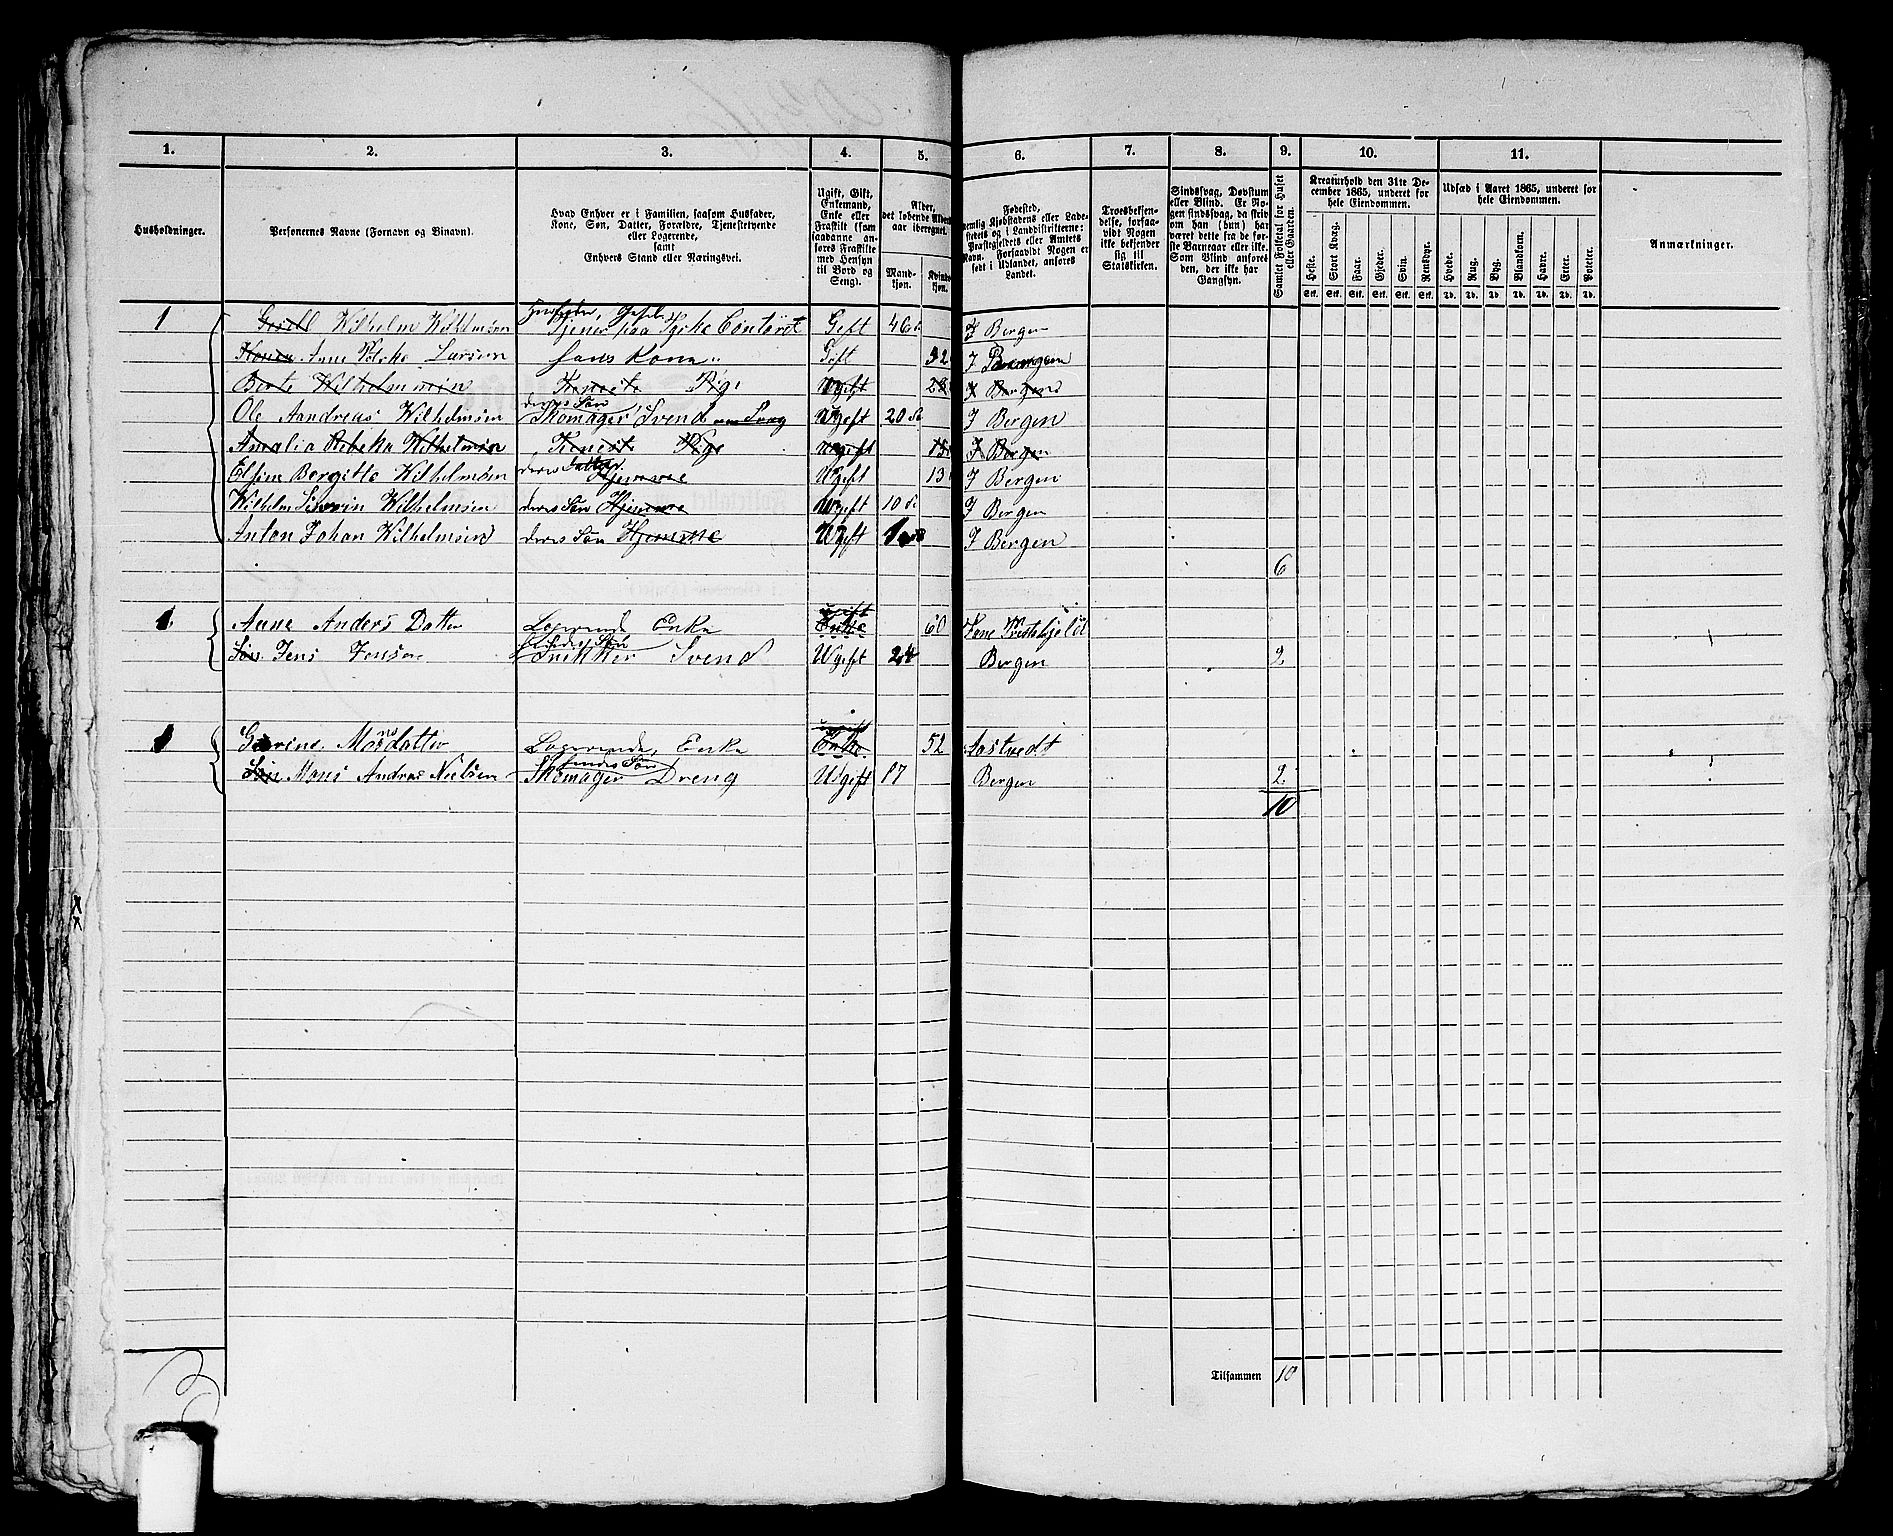 1. 2. 3. 4. 5. 6. 7. 8. 9. 10. 11.
Husholdninger.
Personernes Navne (Fornavn og Binavn).
Hvad Enhver er i Familien, saasom Husfader,
Kone, Søn, Datter, Forældre, Tjenestetyende
eller Logerende,
samt
Enhvers Stand eller Næringsvei.
Ugift, Gift,
Enkemand,
Enke eller
Fraskilt (som
saadanne an-
føres Fraskilte
med Hensyn
til Bord og
Seng).
Alder,
det løbende Alders-
aar iberegnet.
Mand-
kjøn.
Kvinde-
kjøn.
Fødested,
nemlig Kjøbstadens eller Lade-
stedets og i Landdistrikterne:
Præstegjeldets eller Amtets
Navn. Forsaavidt Nogen er
født i Udlandet, anføres
Landet.
Troesbekjen-
delse, forsaa-
vidt Nogen
ikke bekjender
sig til
Statskirken.
Sindssvag, Døvstum
eller Blind. Er No-
gen sindssvag, da skriv
om han (hun) har
været dette fra de før-
ste Barneaar eller ikke.
Som Blind anføres
den, der ikke har
Gangsyn.
Samlet Folketal for Huset
eller Gaarden.
Kreaturhold den 31te De-
cember 1865, underet for
hele Eiendommen.
Heste. Stort Kvæg. Faar. Gjeder. Svin. Rensdyr.
Stk. Stk. Stk. Stk. Stk. Stk.
Udsæd i Aaret 1865, underet for
hele Eiendommen.
Hvede. Rug. Byg. Blandkorn. Havre. Erter. Poteter.
Td. Td. Td. Td. Td. Td. Td.
Anmærkninger.
1 Wilhelm Wilhelmsen Tjener paa Tyske Contoret Geft 46 I Bergen
Konen Ane Larsen hans Kone Geft 52 I Bergen
Berte Wilhelmsen Tieneste Pige Ugeft I Bergen
Ole Aandreas Wilhelmsen deres Søn Skomager Svend Ugeft 20 I Bergen
Amalia Rebeka Wilhelmsen Tieneste Pige Ugeft I Bergen
Elsine Bergitte Wilhelmsen deres Datter Hjemme Ugeft 13 I Bergen
Wilhelm Wilhelmsen deres Søn Hjemme Ugeft 10 I Bergen
Anton Johan Wilhelmsen deres Søn Hjemme Ugeft I Bergen
6
1 Aane Anders Datter Logerende Enka ugift Enke 60
Søn Jens Jensen hendes Søn Snikker Svend Ugeft 24 Bergen 2
1 Logerende, Enka ugift Enke 52 Aastvedt
Søn Mons Andras Nielsen hendes Søn Skomager Dreng Ugeft 17 Bergen 2
10
Tilsammen 10